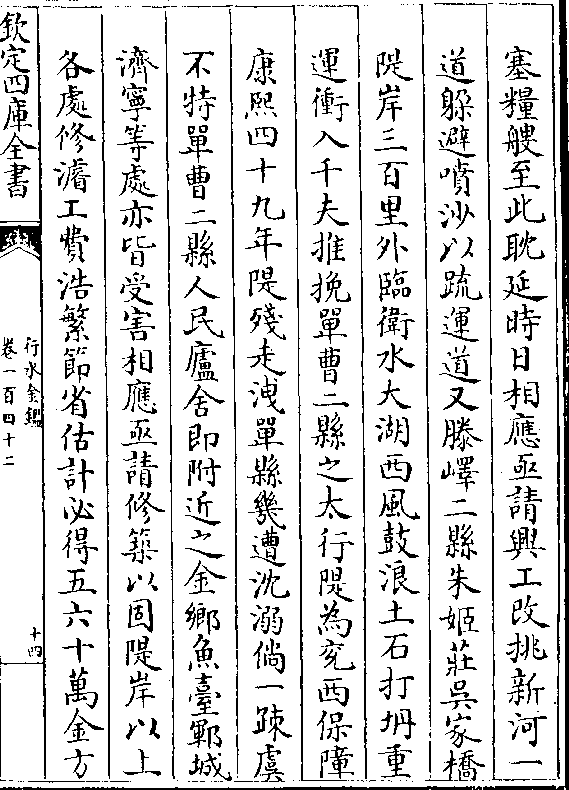 塞糧艘至此耽延時日相應亟請興工改挑新河一
道躲避噴沙以疏運道又滕嶧二縣朱姬莊吳家橋
隄岸三百里外臨衛水大湖西風鼓浪土石打坍重
運衝入千夫推挽單曹二縣之太行隄為兖西保障
康熙四十九年隄殘走洩單縣幾遭沈溺倘一踈虞
不特單曹二縣人民廬舍即附近之金鄉魚臺鄆城
濟寧等處亦皆受害相應亟請修築以固隄岸以上
各處修濬工費浩繁節省估計必得五六十萬金方
欽定四庫全書
行水金鑑
卷一百四十二
十四